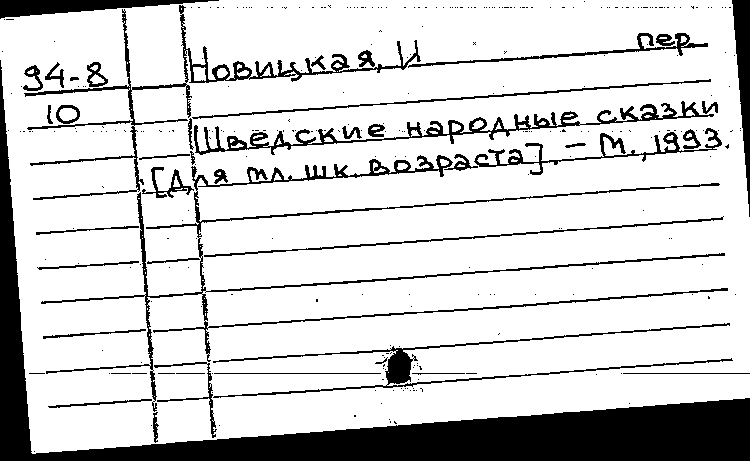 94-8 Новицкая, И пер.
10
Шведские народные сказки
: [Для мл. шк. возраста]. – М., 1993.